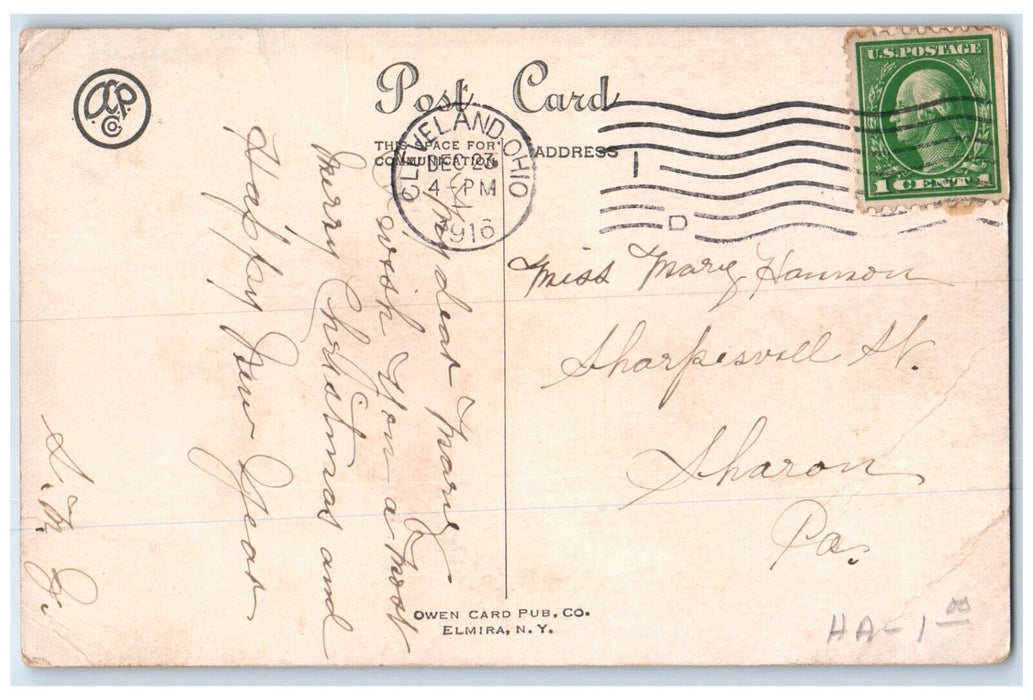 OCP. Co.
Post Card
THIS SPACE FOR
COMMUNICATION
ADDRESS
CLEVELAND, OHIO
DEC 23
4 - PM
1916
1
D
U.S. POSTAGE
1 CENT 1
Miss Mary Hannon
Sharpesvill St.
Sharon
Pa.
My dear Mary
I wish you a most
Merry Christmas and
Happy New Year
S. M. J.
OWEN CARD PUB. CO.
ELMIRA, N. Y.
HA-1 00